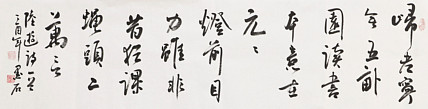 歸老寧
無五畝
園讀書
本意在
元々
燈前目
力雖非
昔猶課
蠅頭二
萬言
陸游詩一首
酉年